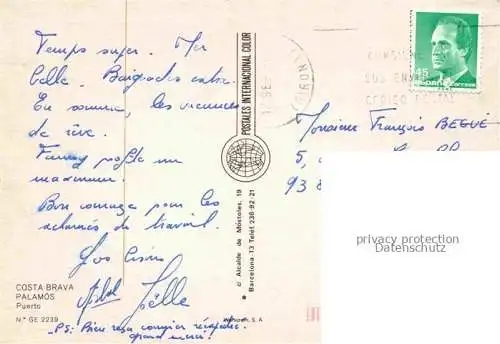 Temps super. Mer
belle. Baignades extra.
En somme, les vacances
de rêve.
Fanny profite un
maximum.
Bon courage pour les
acharnés du travail.
Vos
Joëlle
PS: Prière
grand merci!
COSTA BRAVA
PALAMÓS
Puerto
N.º GE 2239
POSTALES INTERNACIONAL COLOR
c/ Alcalde de Móstoles, 19
Barcelona-13 Telef. 236-92-21
S. A.
GIRON
CONSIGNE
SUS ENV
CODIGO POSTAL
45
ESPAÑA CORREOS
Monsieur François BEGUÉ
5,
93
privacy protection
Datenschutz